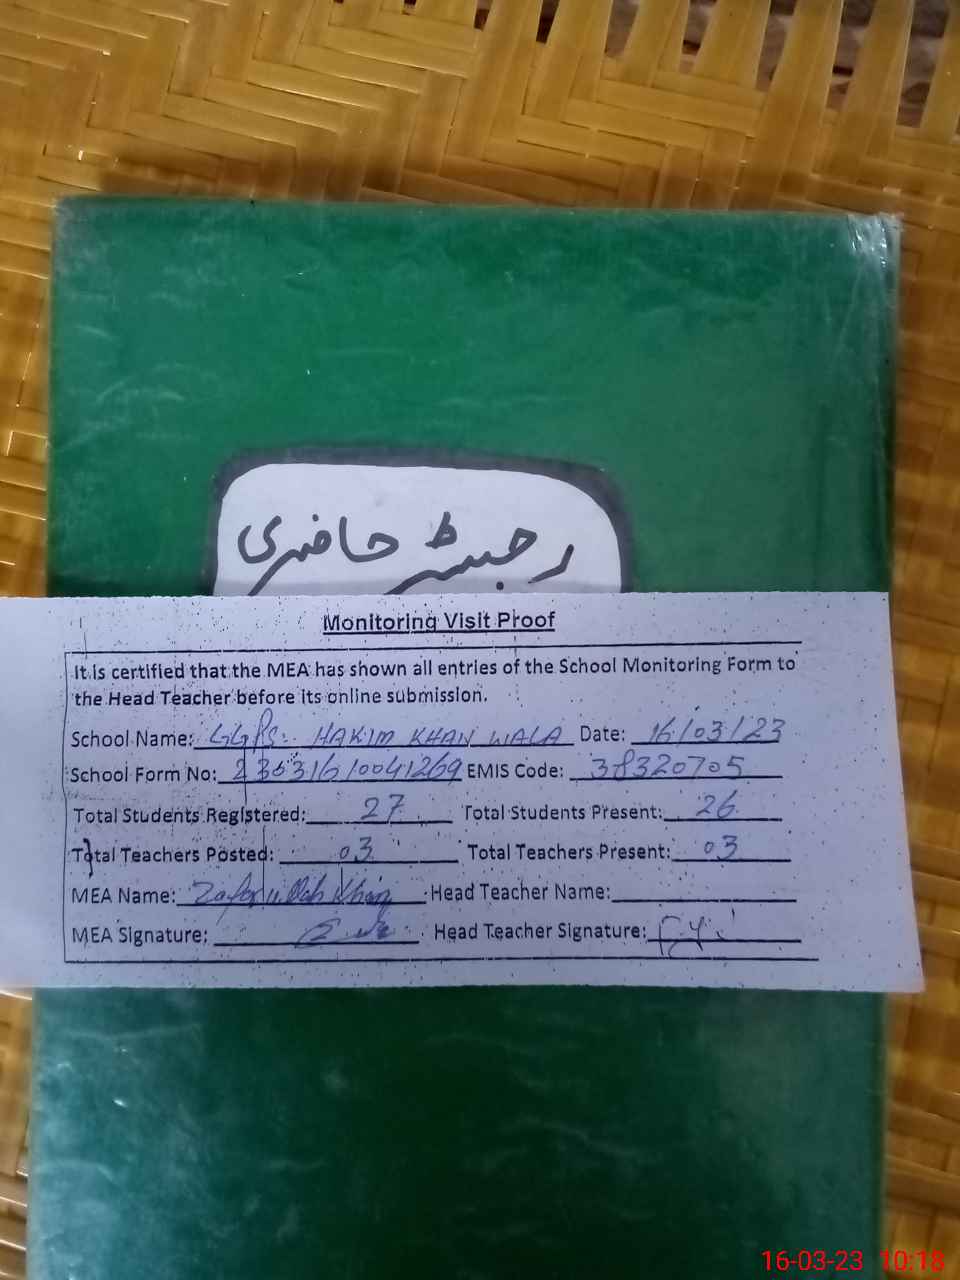 رجسٹر حاضری
Monitoring Visit Proof
It is certified that the MEA has shown all entries of the School Monitoring Form to
the Head Teacher before its online submission.
School Name: GGPS: HAKIM KHAN WALA Date: 16/03/23
School Form No: 23031610041269 EMIS Code: 38320705
Total Students Registered: 27 Total Students Present: 26
Total Teachers Posted: 03 Total Teachers Present: 03
MEA Name: Zafar ullah Khan Head Teacher Name:
MEA Signature: Head Teacher Signature:
16-03-23 10:18